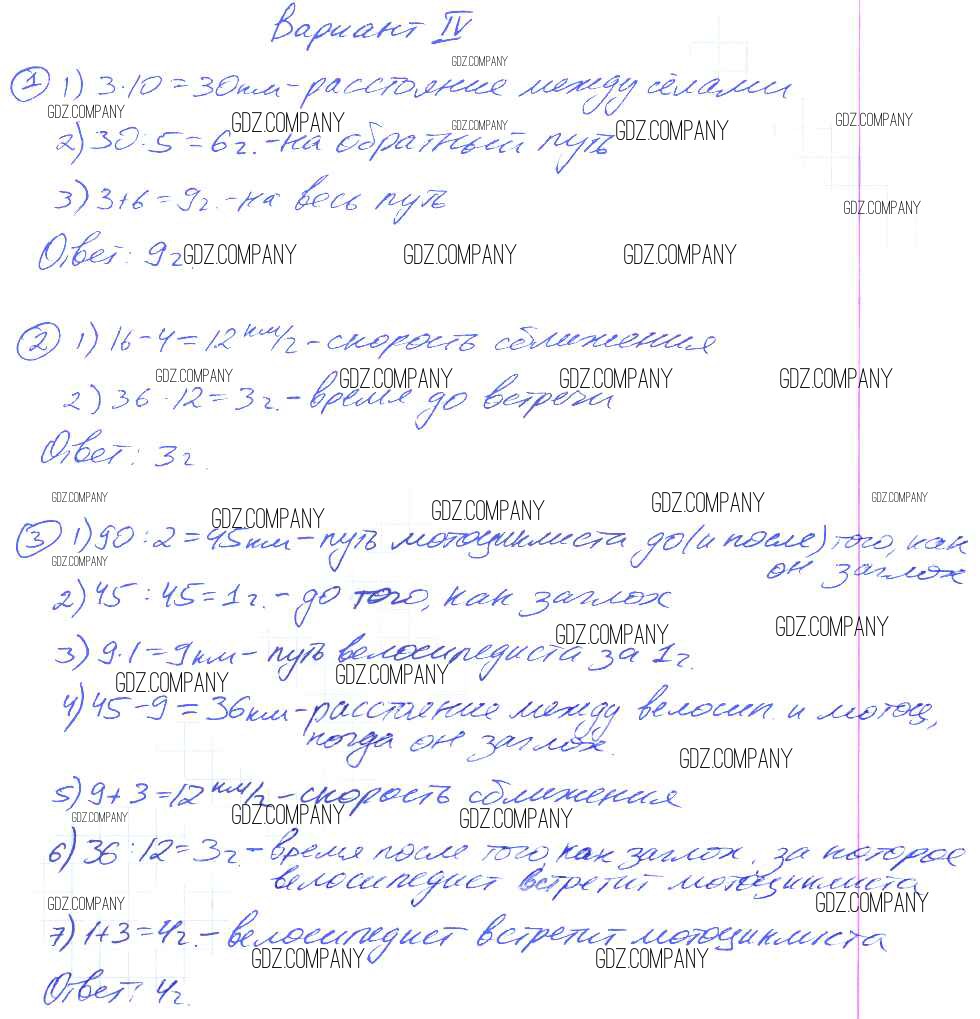 Вариант IV
GDZ.COMPANY
1 1) 3·10=30км-расстояние между сёлами
GDZ.COMPANY GDZ.COMPANY GDZ.COMPANY GDZ.COMPANY GDZ.COMPANY
2) 30:5=6ч.-на обратный путь
3) 3+6=9ч.-на весь путь
GDZ.COMPANY
Ответ: 9ч.
GDZ.COMPANY GDZ.COMPANY GDZ.COMPANY
2 1) 16-4=12км/ч-скорость сближения
GDZ.COMPANY GDZ.COMPANY GDZ.COMPANY GDZ.COMPANY
2) 36:12=3ч.-время до встречи
Ответ: 3ч.
GDZ.COMPANY GDZ.COMPANY GDZ.COMPANY GDZ.COMPANY GDZ.COMPANY
3 1) 90:2=45км-путь мотоциклиста до(и после) того, как
он заглох
GDZ.COMPANY
2) 45:45=1ч.-до того, как заглох
GDZ.COMPANY GDZ.COMPANY
3) 9·1=9км-путь велосипедиста за 1ч.
GDZ.COMPANY GDZ.COMPANY
4) 45-9=36км-расстояние между велосип. и мотоц,
когда он заглох.
GDZ.COMPANY
5) 9+3=12км/ч-скорость сближения
GDZ.COMPANY GDZ.COMPANY GDZ.COMPANY
6) 36:12=3ч.-время после того, как заглох, за которое
велосипедист встретит мотоциклиста
GDZ.COMPANY GDZ.COMPANY
7) 1+3=4ч.-велосипедист встретит мотоциклиста
GDZ.COMPANY GDZ.COMPANY
Ответ: 4ч.